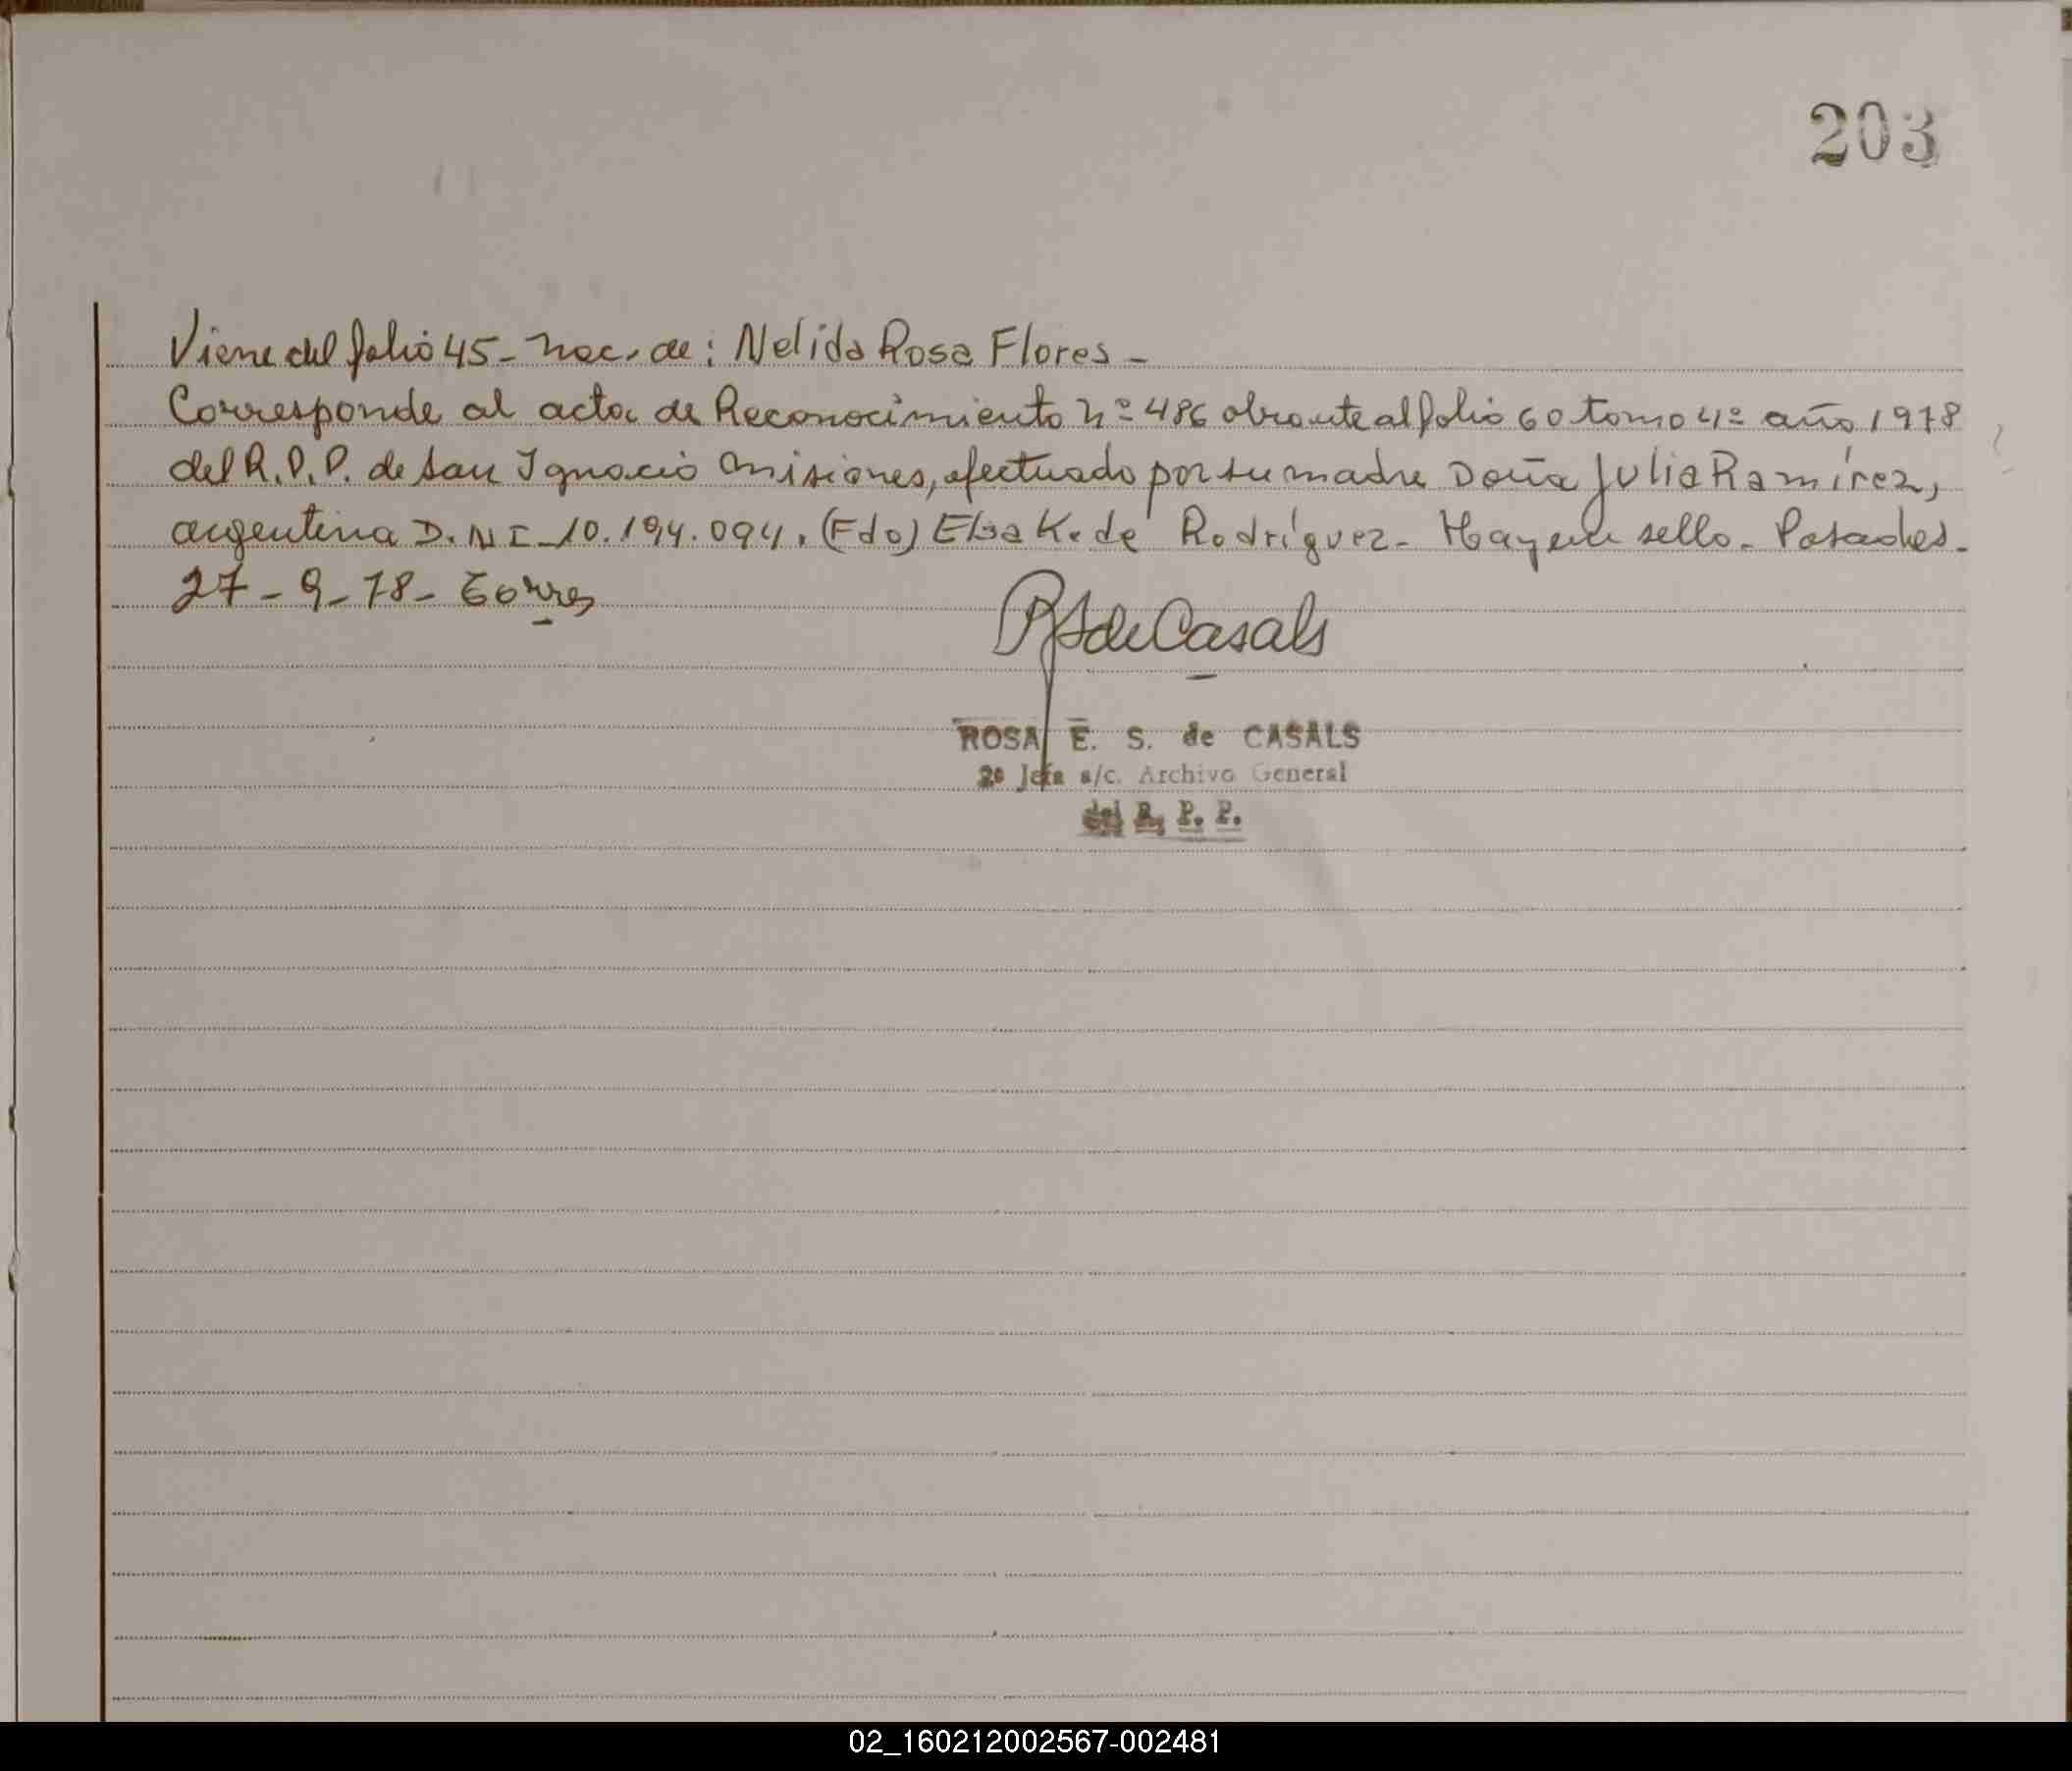 203
Viene del folio 45- Nac. de: Nelida Rosa Flores -
Corresponde al acta de Reconocimiento nº 486 obrante al folio 60 tomo 4º año 1978
del R.P.P. de San Ignacio Misiones, efectuado por su madre Doña Julia Ramírez,
argentina D.NI-10.194.094. (Fdo) Elsa K. de Rodríguez- Hay un sello- Posadas-
27-9-78- Torres
RSdeCasals
ROSA E. S. de CASALS
2º Jefa a/c. Archivo General
del R. P. P.
02_160212002567-002481